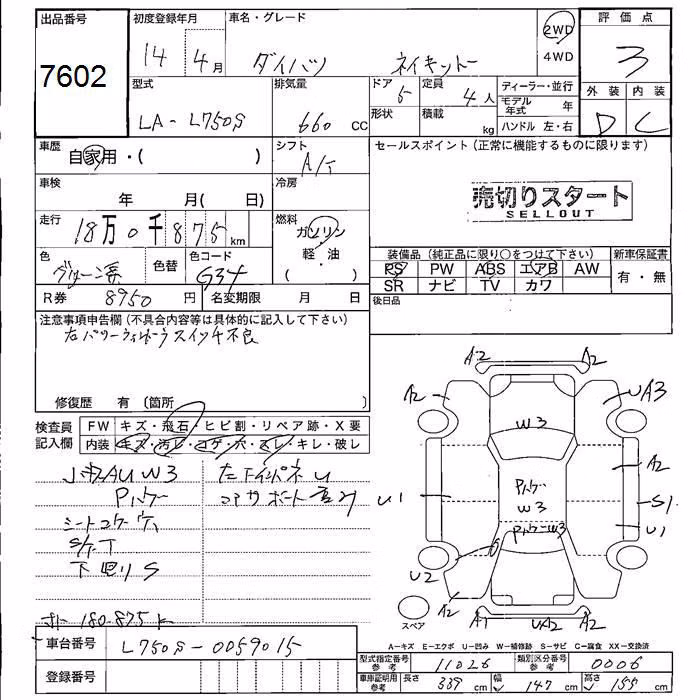 出品番号
7602
初度登録年月
14 4月
車名・グレード
ダイハツ ネイキッド
2WD
4WD
評価点
3
外装 内装
D C
型式
LA-L750S
排気量
660 CC
ドア
5
形状
定員
4人
積載
kg
ディーラー・並行
モデル年式 年
ハンドル 左・右
車歴
自家用・( )
シフト
A/T
セールスポイント(正常に機能するものに限ります)
売切りスタート
SELLOUT
車検
年 月( 日)
冷房
走行
18万0千875km
燃料
ガソリン
軽・油
( )
色
グリーン系
色替
色コード
G34
装備品(純正品に限り○をつけて下さい)
PS PW ABS エアB AW
SR ナビ TV カワ
新車保証書
有・無
R券 8950円
名変期限 月 日
後日品
注意事項申告欄(不具合内容等は具体的に記入して下さい)
左パワーウィンドウスイッチ不良
修復歴 有(箇所 )
検査員記入欄
FW キズ・飛石・ヒビ割・リペア跡・X要
内装 キズ・汚レ・コゲ・穴・スレ・キレ・破レ
W3
左下インパネU
コアサポート
シートコゲ穴
S/T
下回りS
180.875k
A2 A2
A2 UA3
W3
A2
U1
W3
S1
U1
W3
U2
A2
A1 UA2 A2
スペア
A-キズ E-エクボ U-凹み W-補修跡 S-サビ C-腐食 XX-交換済
車台番号 L750S-0059015
登録番号
型式指定番号参考 11026
類別区分番号参考 0006
車庫証明用参考 長さ 339cm 幅 147cm 高さ 155cm